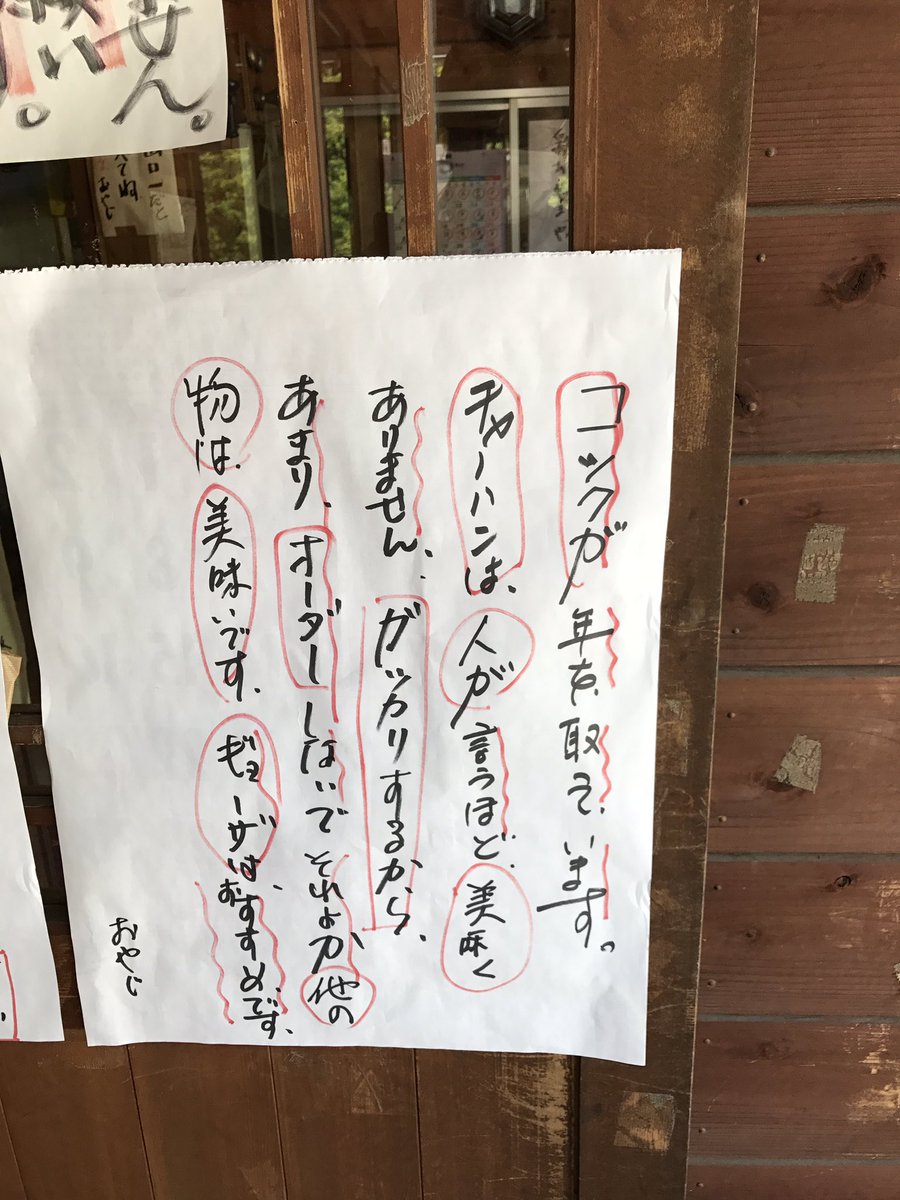 コックが年を、取って、います。
チャーハンは、人が言うほど、美味く
ありません、ガッカリするから、
あまり、オーダーしないでそれよか他の
物は、美味いです、ギョーザは、おすすめです、
おやじ
せん。